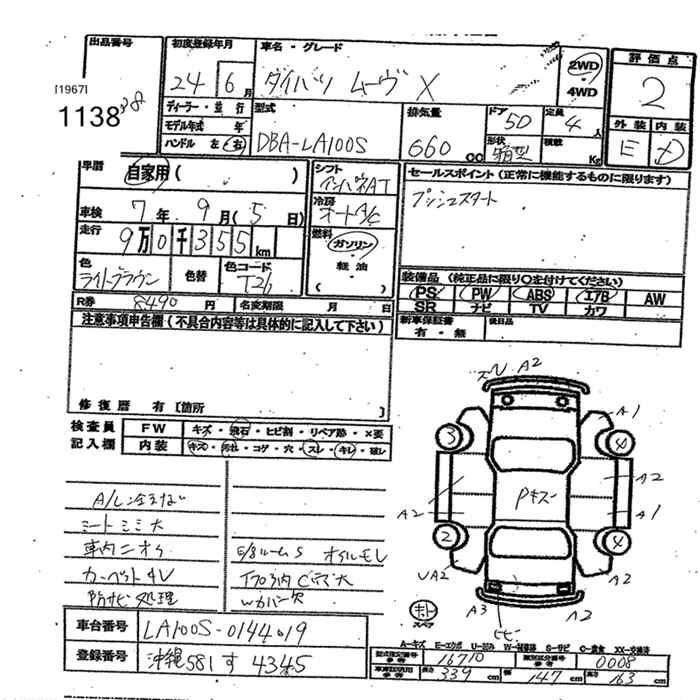 出品番号
[1967]
1138
初度登録年月
24年6月
車名・グレード
ダイハツ ムーヴ X
2WD
4WD
評価点
2
外装 内装
E D
ディーラー・並行
モデル年式 年
ハンドル 左 右
型式
DBA-LA100S
排気量
660cc
ドア
5D
形状
箱型
定員
4人
積載
Kg
車歴
自家用( )
車検 7年9月(5日)
走行 9万0千355km
色 ライトブラウン
色替
色コード T26
シフト
インパネAT
冷房
オートA/C
燃料
ガソリン
軽油
( )
セールスポイント(正常に機能するものに限ります)
プッシュスタート
装備品(純正品に限り○を付けてください)
PS PW ABS エアB AW
SR ナビ TV カワ
新車保証書
有・無
後日品
R券 8490円
名変期限 月 日
注意事項申告欄(不具合内容等は具体的に記入して下さい)
修復歴 有 [箇所 ]
検査員 FW キズ・飛石・ヒビ割・リペア跡・×要
記入欄 内装 キズ・汚れ・コゲ・穴・スレ・キレ・破レ
A/C冷えない
シートシミ大
車内ニオイ
カーペットヨレ
防サビ処理
E/gルームS オイルモレ
下回り内Cサビ大
Wカバー欠
車台番号 LA100S-0144019
登録番号 沖縄581す4345
スレ A2
A1
3
4
Pキズ
A2
A2
A1
2
4
UA2
A2
A3
A2
ヒビ
キト
スペア
A-キズ E-エクボ U-凹み W-補修跡 S-サビ C-腐食 XX-交換済
型式指定番号 参考 16710
類別区分番号 参考 0008
車庫証明用 参考 長さ 339cm 幅 147cm 高さ 163cm